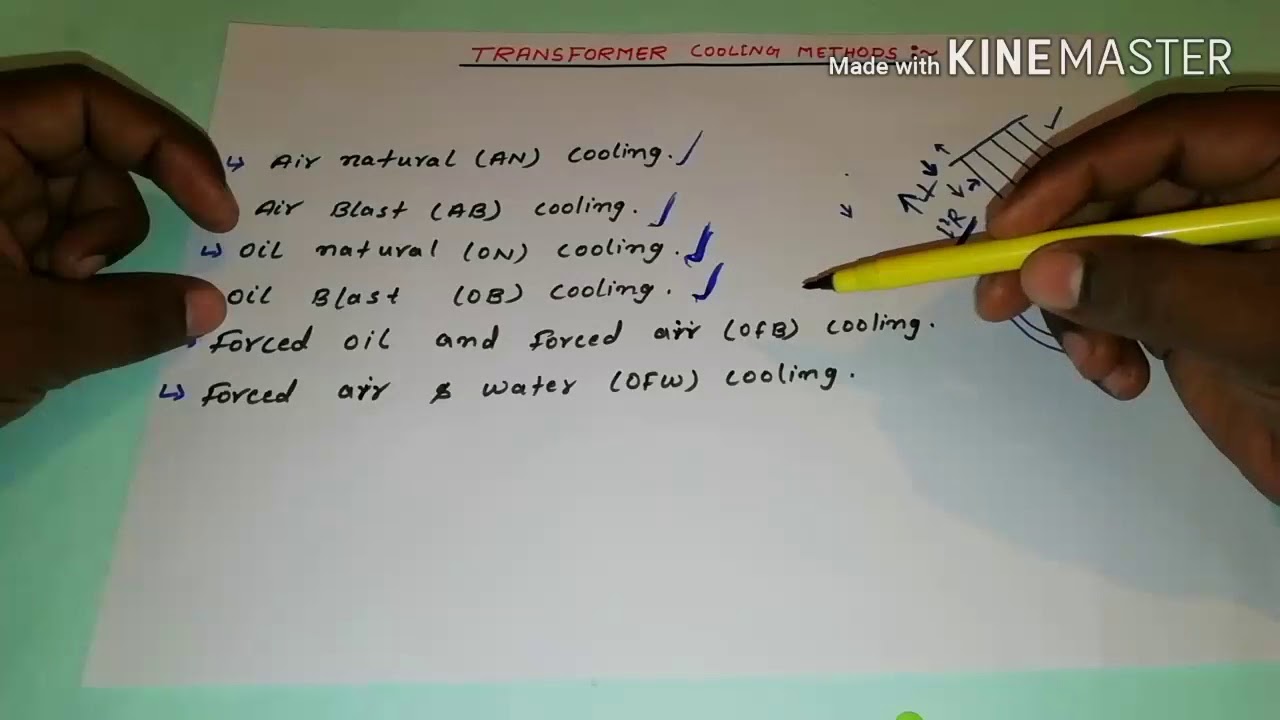 TRANSFORMER COOLING METHODS :~
Made with KINEMASTER
↳ Air natural (AN) cooling.
Air Blast (AB) cooling.
↳ Oil natural (ON) cooling.
Oil Blast (OB) cooling.
forced oil and forced air (OfB) cooling.
↳ forced air & water (OFW) cooling.
I²R